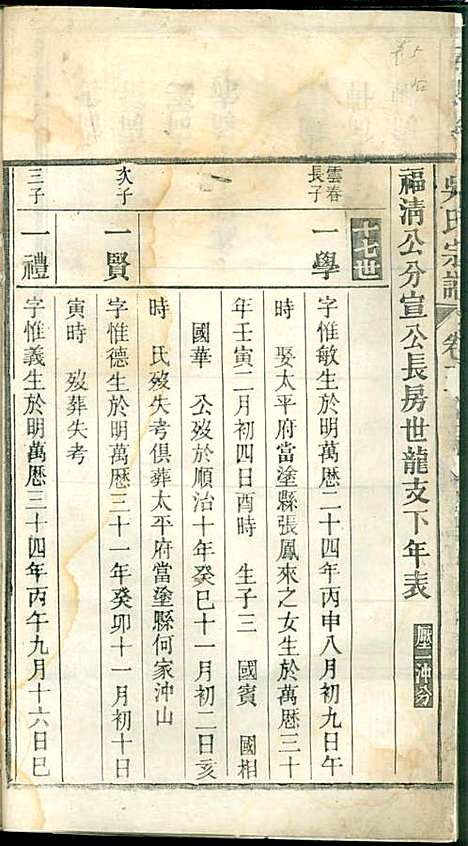 吳氏宗譜
福清公分宣公長房世龍支下年表
壓一沖分
十七世
雲春長子
一學
字惟敏生於明萬歷二十四年丙申八月初九日午
時 娶太平府當塗縣張鳳來之女生於萬歷三十
年壬寅二月初四日酉時 生子三 國賓 國相
國華 公歿於順治十年癸巳十一月初二日亥
時 氏歿失考俱葬太平府當塗縣何家沖山
次子
一賢
字惟德生於明萬歷三十一年癸卯十一月初十日
寅時 歿葬失考
三子
一禮
字惟義生於明萬歷三十四年丙午九月十六日巳